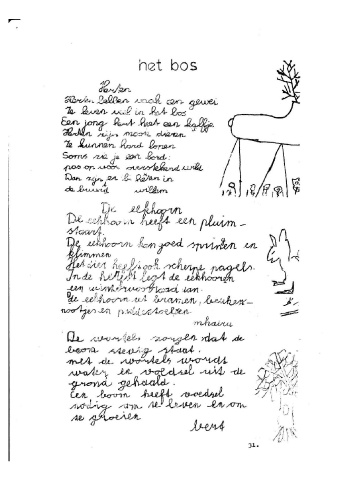 het bos
Herten
Herten hebben vaak een gewei
Ze leven veel in het bos
Een jong hert heet een kalfje
Herten zijn mooie dieren
Ze kunnen hard lopen
Soms zie je een bord:
pas op voor overstekend wild
Dan zijn er herten in
de buurt willem
De eekhoorn
De eekhoorn heeft een pluim-
staart.
De eekhoorn kan goed springen en
klimmen
Het dier heeft ook scherpe nagels.
In de herfst legt de eekhoorn
een wintervoorraad aan.
de eekhoorn eet bramen, beuken-
nootjes en paddestoelen.
De wortels zorgen dat de
boom stevig staat.
met de wortels wordt
water en voedsel uit de
grond gehaald.
Een boom heeft voedsel
nodig om te leven en om
te groeien
bert
31.